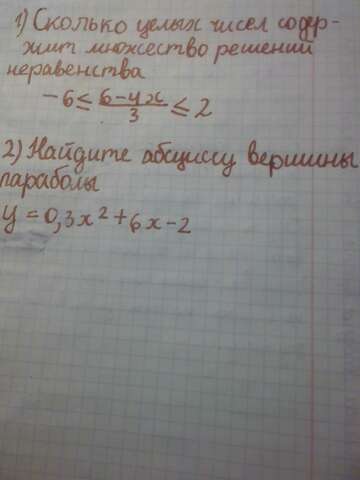 1) Сколько целых чисел содер-
жит множество решений
неравенства
-6 ≤ 6-4x/3 ≤ 2
2) Найдите абсциссу вершины
параболы
y = 0,3x² + 6x - 2